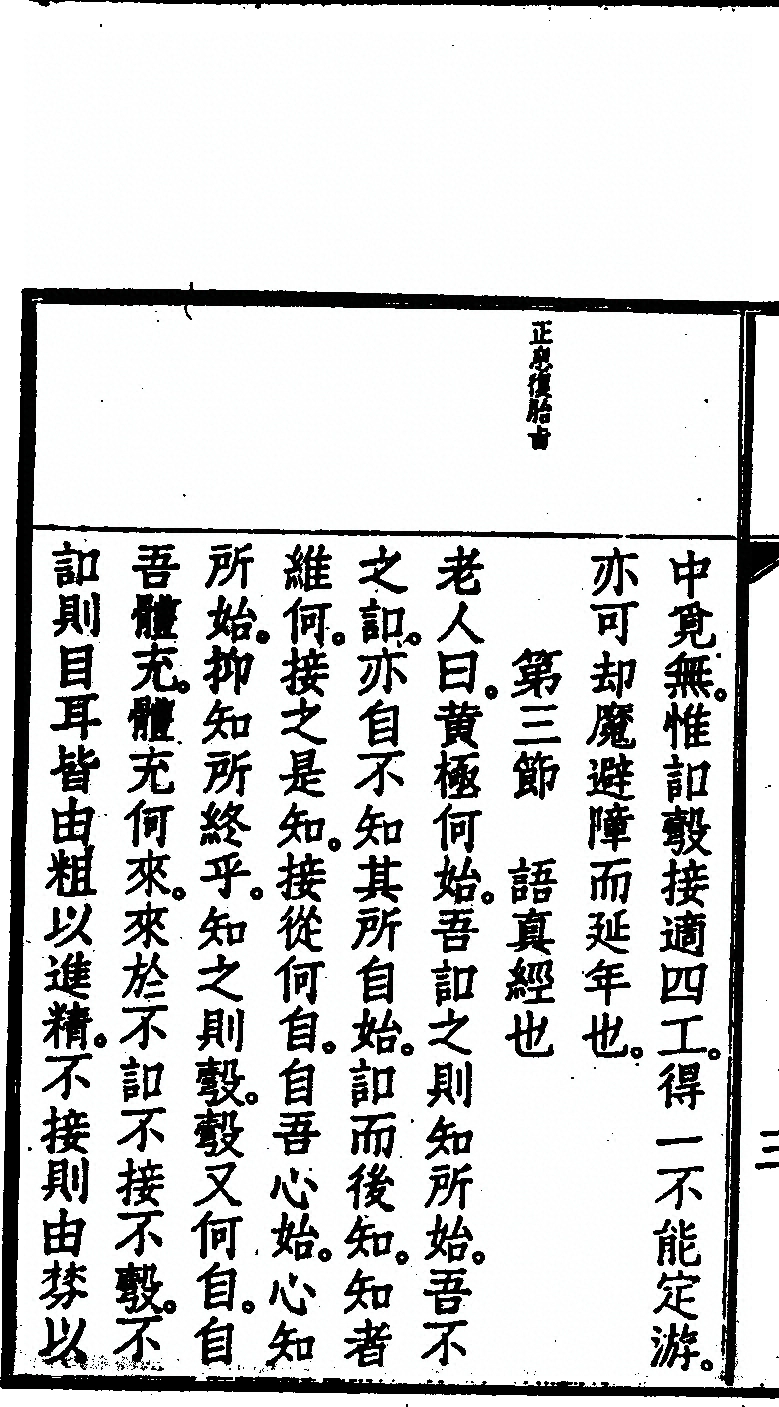 正息復胎由
中覓無。惟訠㲄接適四工。得一不能定游。
亦可却魔避障而延年也。
第三節 語真經也
老人曰。黄極何始。吾訠之則知所始。吾不
之訠。亦自不知其所自始。訠而後知。知者
維何。接之是知。接從何自。自吾心始。心知
所始。抑知所終乎。知之則㲄。㲄又何自。自
吾體充。體充何來。來於不訠不接不㲄。不
訠則目耳皆由粗以進精。不接則由棼以
三